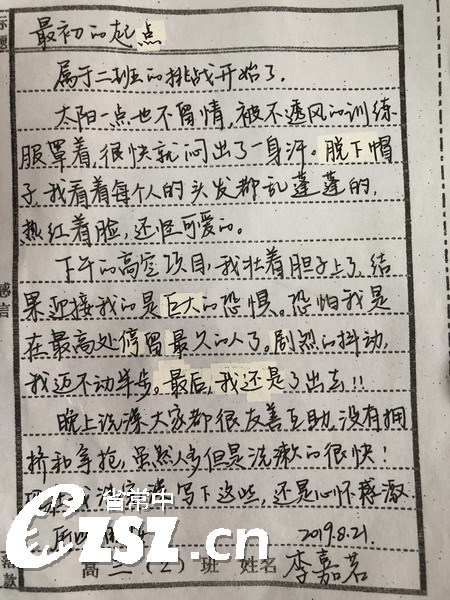 标题
最初的起点
属于二班的挑战开始了.
太阳一点也不留情，被不透风的训练
服罩着，很快就闷出了一身汗。脱下帽
子，我看着每个人的头发都乱蓬蓬的，
热红着脸，还怪可爱的。
下午的高空项目，我壮着胆子上了，结
果迎接我的是巨大的恐惧。恐怕我是
在最高处停留最久的人了。剧烈的抖动，
我迈不动半步。最后，我还是了出去！！
晚上洗澡大家都很友善互助，没有拥
挤和争抢，虽然人多但是洗漱的很快！
我洗完澡写下这些，还是心怀感激
2019.8.21
感言
落款
高二（2）班 姓名 李嘉茗
省常中
czsz.cn